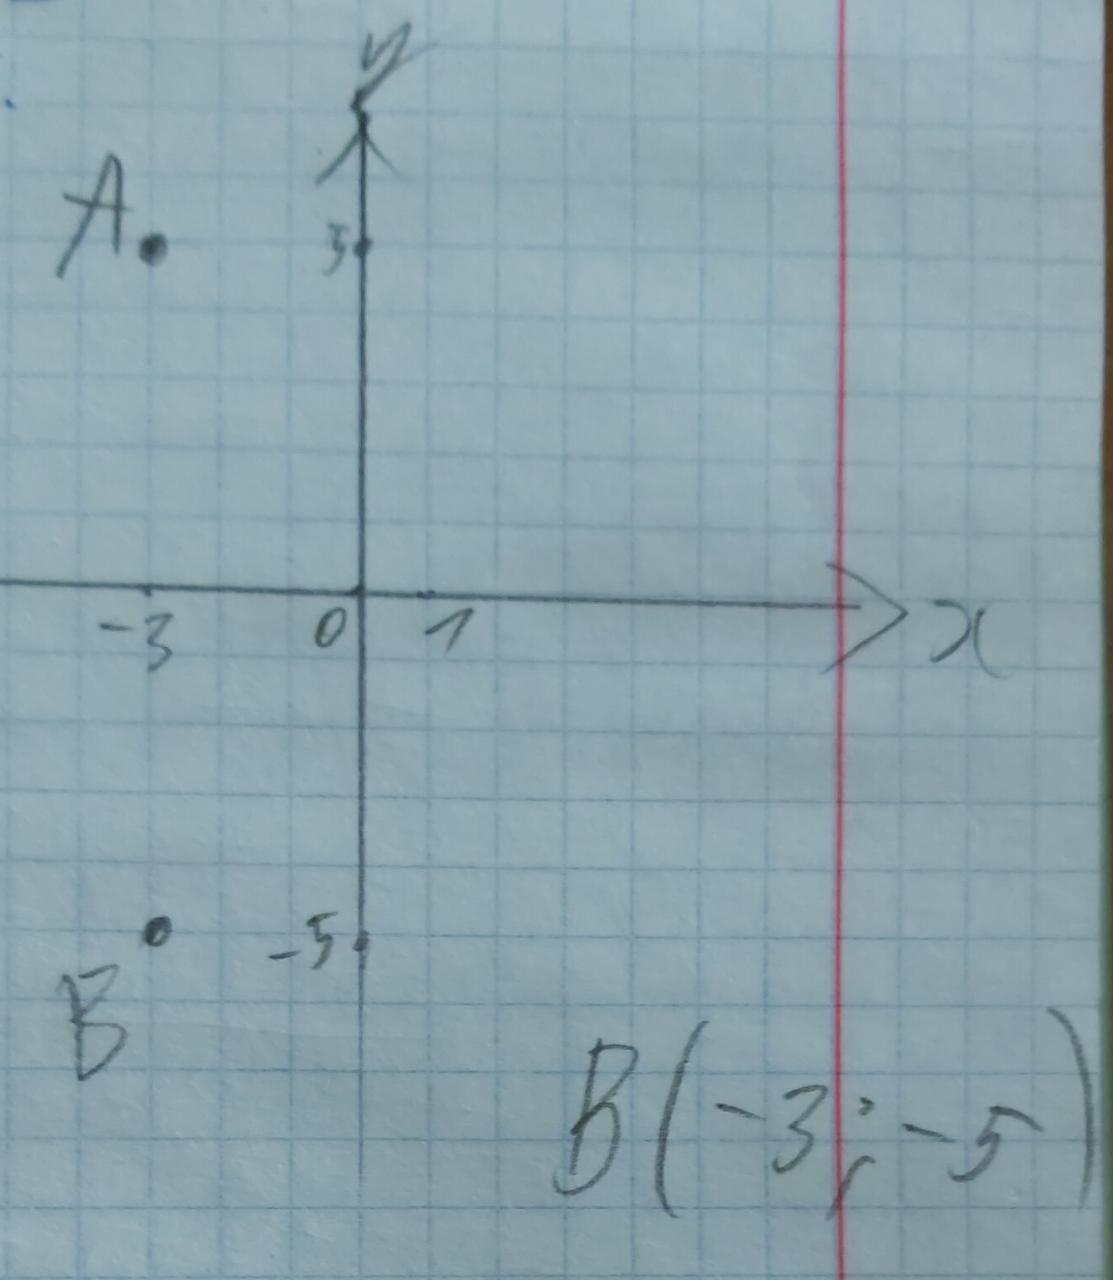 y
A
5
-3
0
1
x
-5
B
B(-3; -5)